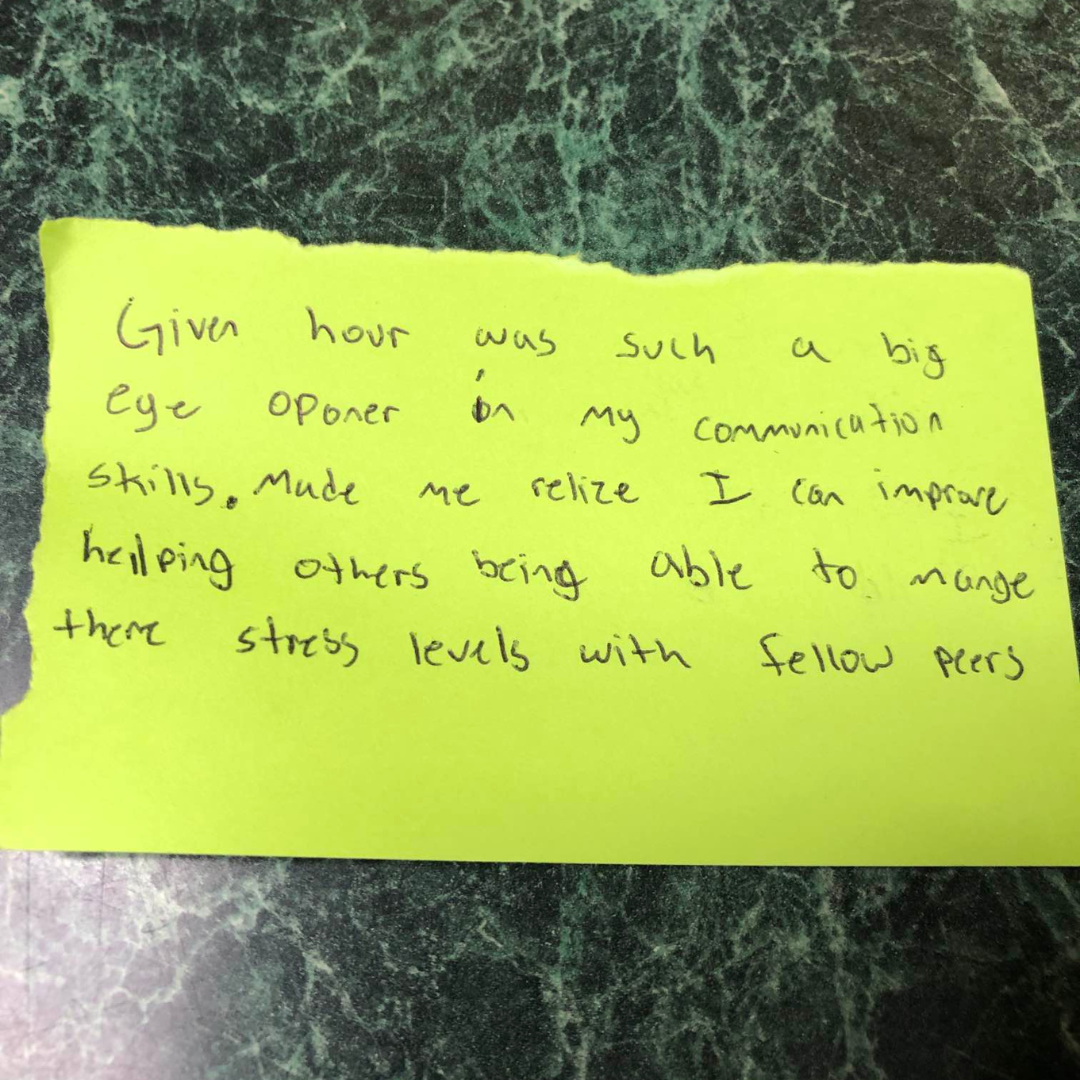 Given hour was such a big
eye oponer in my communication
skills. Made me relize I can improve
helping others being able to mange
there stress levels with fellow peers